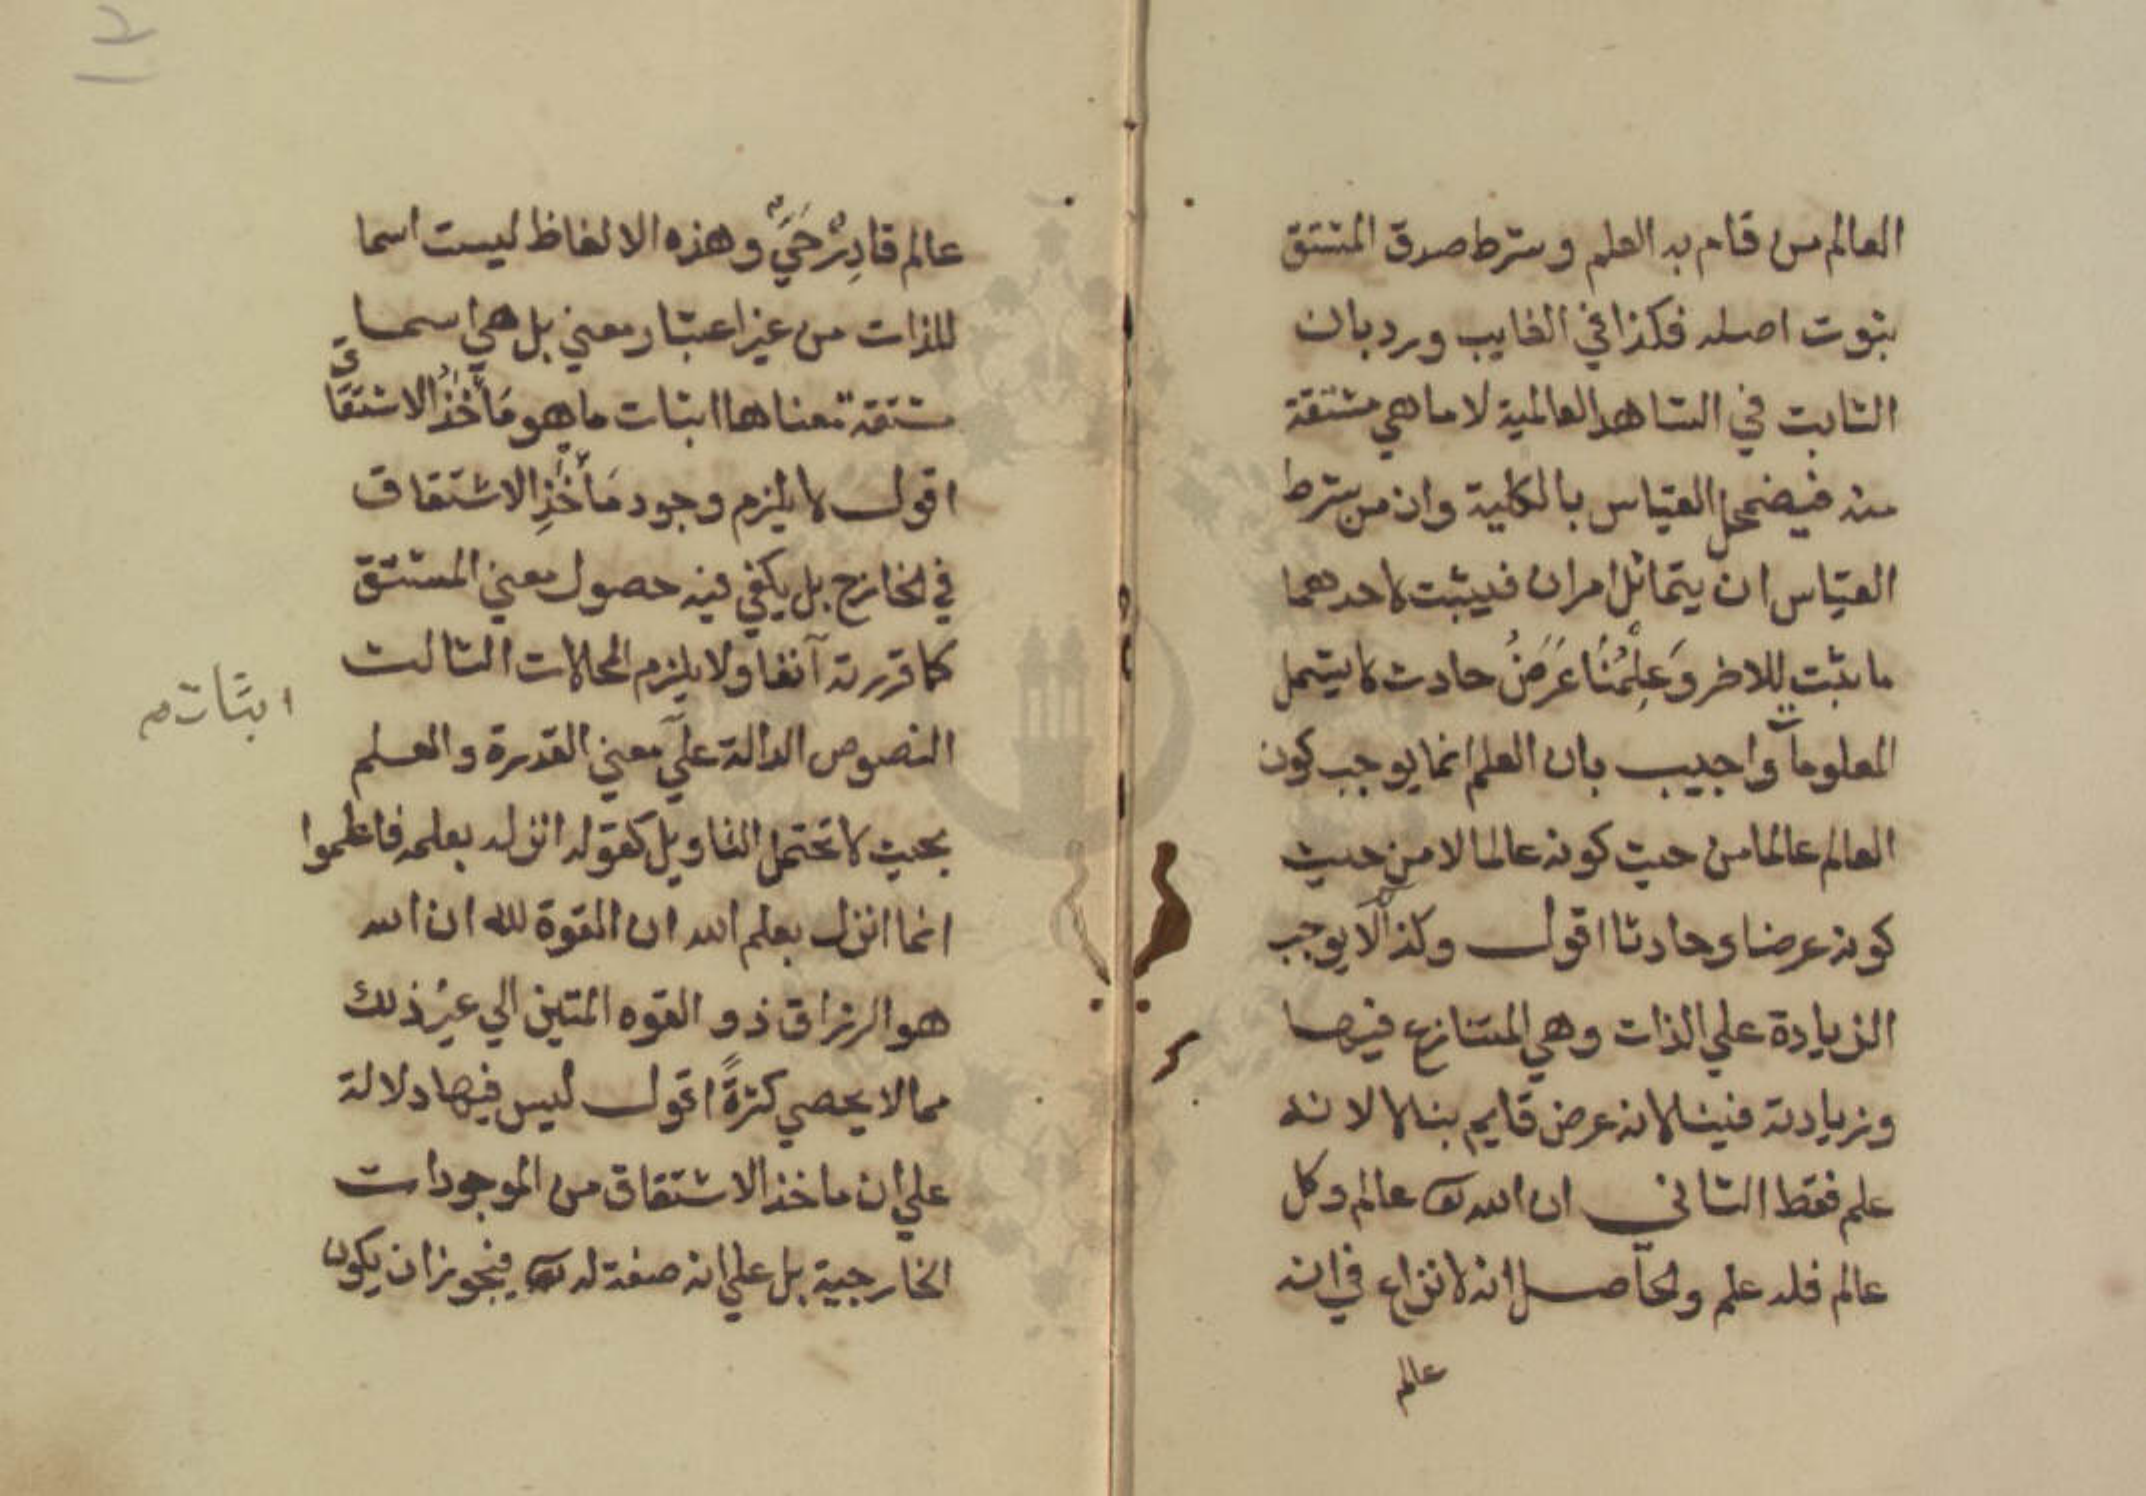 العالم من قام به العلم وشرط صدق المشتق
ثبوت اصله فكذا في الغايب ورد بان
الثابت في الشاهد العالمية لا ما هي مشتقة
منه فيضمحل القياس بالكلية وان من شرط
القياس ان يتماثل امران فيثبت لاحدهما
ما يثبت للاخر وَعِلْمُنَا عَرَضٌ حادث لا يشمل
المعلومات واجيب بان العلم انما يوجب كون
العالم عالما من حيث كونه عالما لا من حيث
كونه عرضا وحادثا اقول وكذا لا يوجب
الزيادة علي الذات وهي المتنازع فيها
وزيادته فينا لانه عرض قايم بنا لا لانه
علم فقط الثاني ان الله تع عالم وكل
عالم فله علم والحاصل انه لا نزاع في انه
عالم
2
عالم قادِرٌ حَيٌّ وهذه الالفاظ ليست اسما
للذات من غير اعتبار معني بل هي اسما
مشتقة معناها اثبات ما هو مَأْخَذُ الاشتقاق
اقول لا يلزم وجود مَأْخَذِ الاشتقاق
في الخارج بل يكفي فيه حصول معني المشتق
كما قررته آنفا ولا يلزم المحالات الثالث
اثبات م
النصوص الدالة علي معني القدرة والعلم
بحيث لا تحتمل التاويل كقوله انزله بعلمه فاعلموا
انما انزل بعلم الله ان القوة لله ان الله
هو الرزاق ذو القوه المتين الي غير ذلك
مما لا يحصي كثرةً اقول ليس فيها دلالة
علي ان ماخذ الاشتقاق من الموجودات
الخارجية بل علي انه صفة له تع فيجوز ان يكون